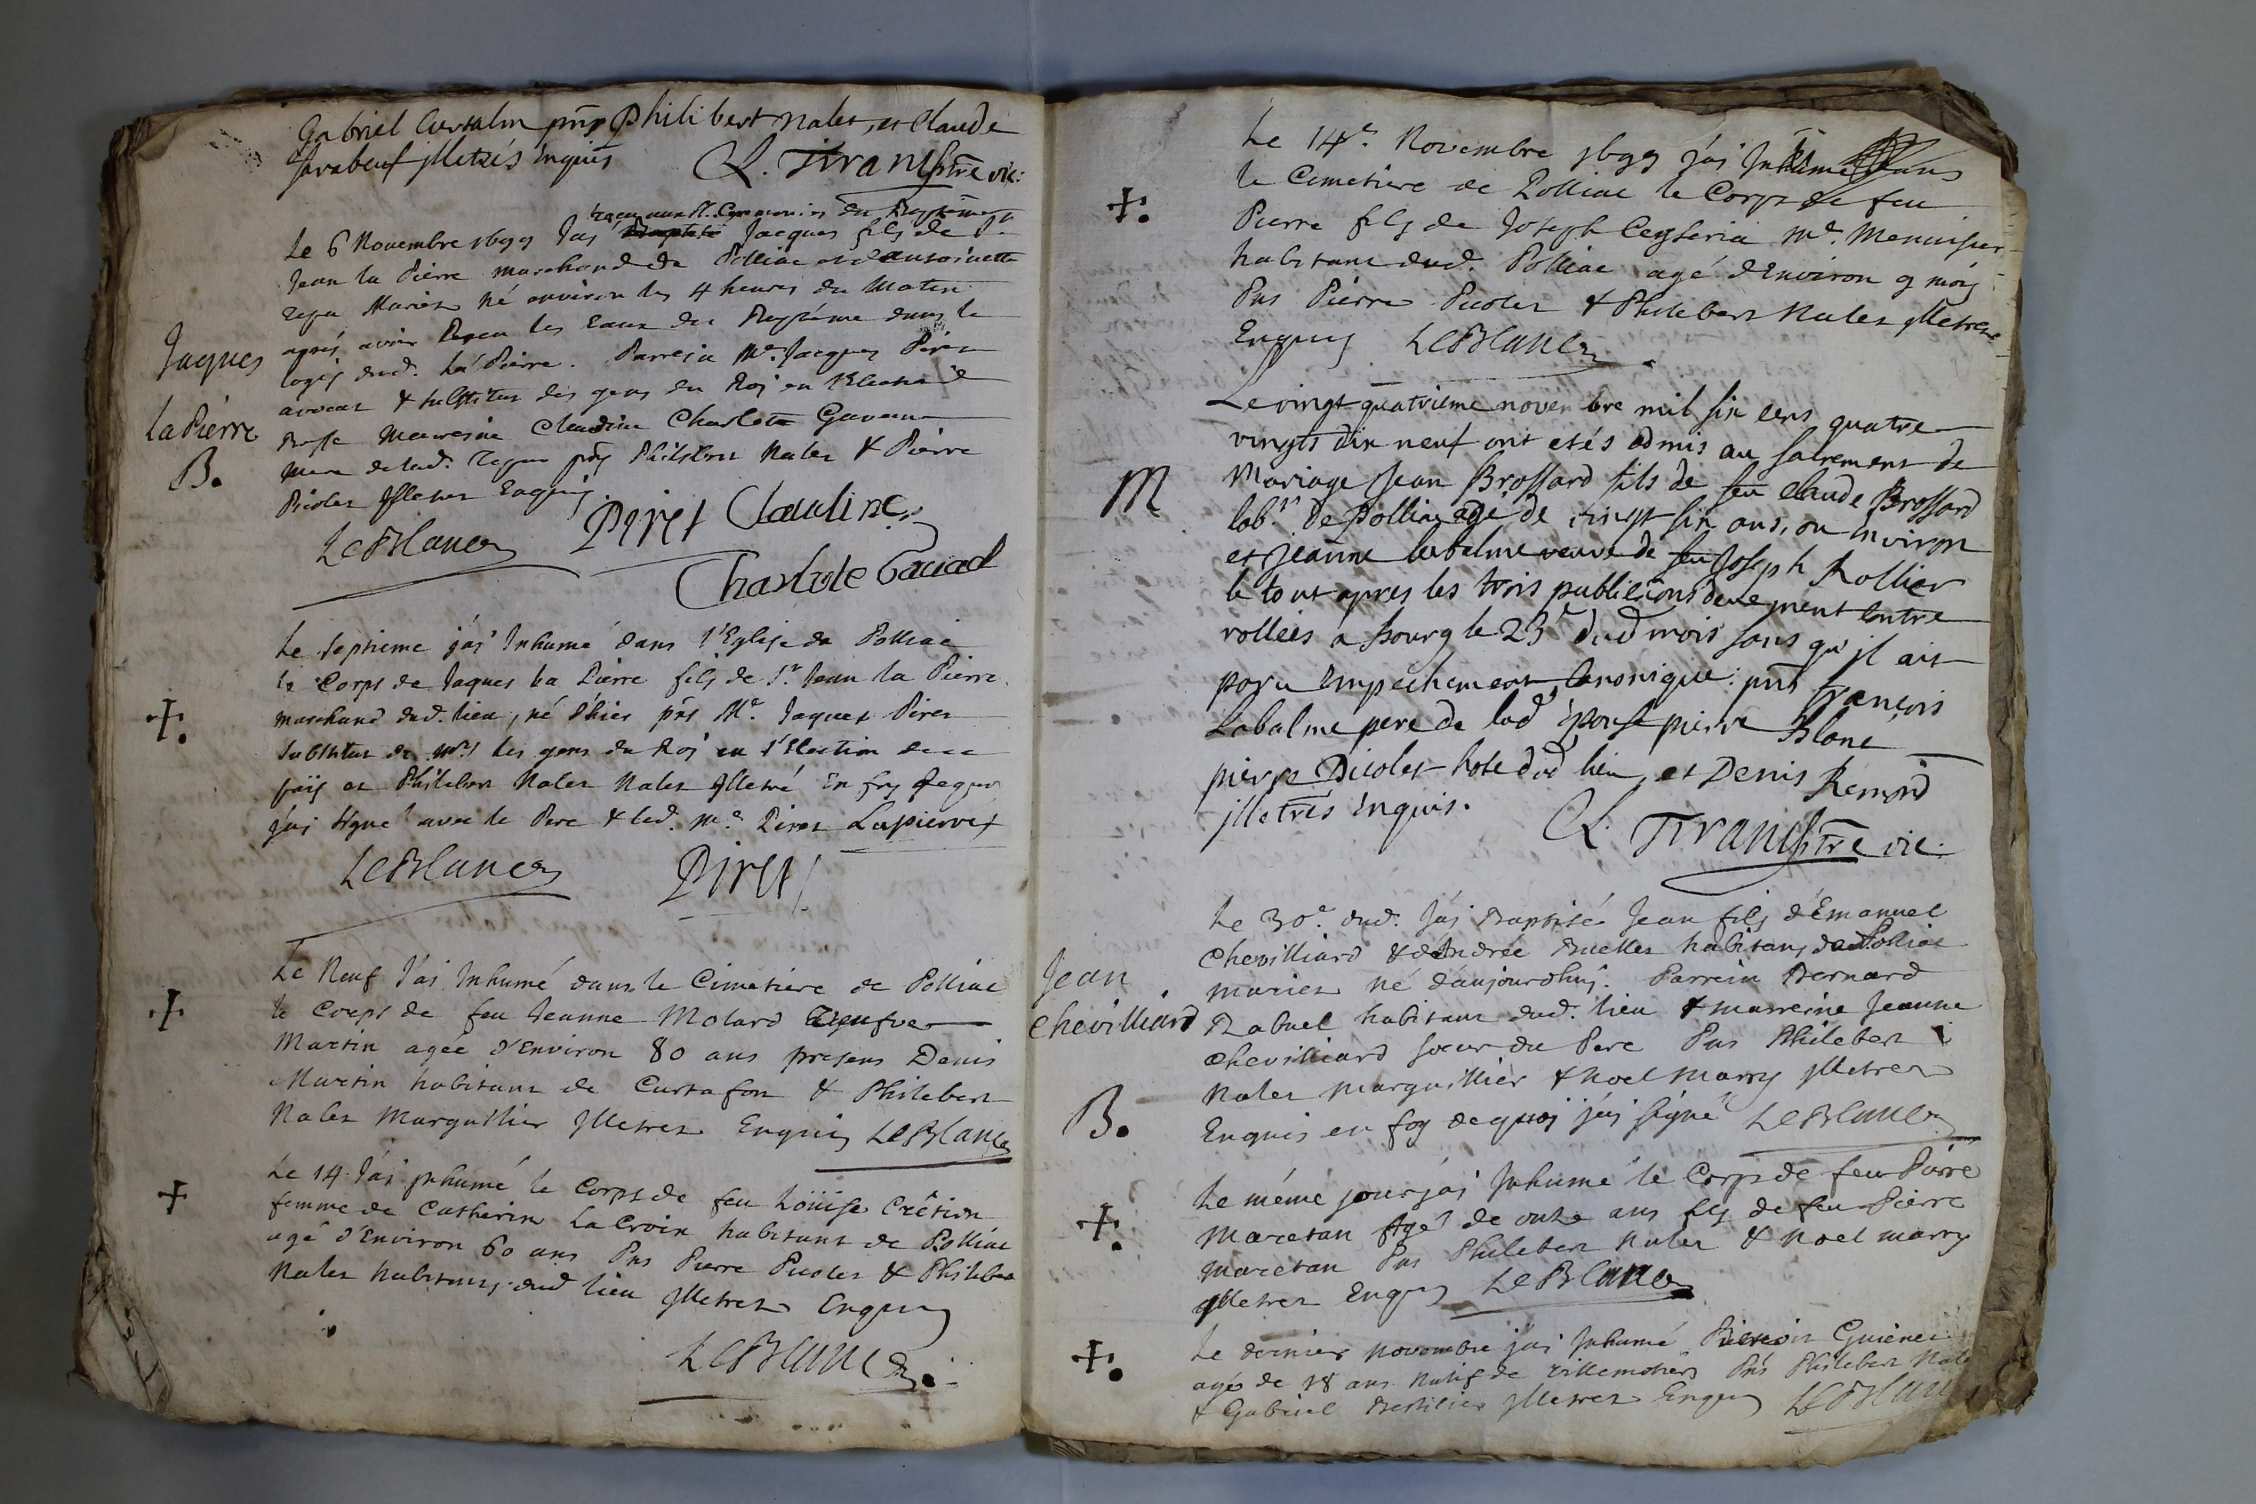 Gabriel Curtalin pnts Philibert Nalet, et Claude
Jarabeuf jlletrés Enquis
C. Tiran pbtre vic:
receu aux Sts. Ceremonies du Baptême
Le 6 Novembre 1699 Jay Baptisé Jacques fils de Sr
Jean la Pierre marchand de Polliac et d'antoinette
mariés né environ les 4 heures du Matin
aprés avoir Receu les Eaux du Baptême dans le
logis dud. la Pierre. Parrein Me. Jacques Piret
avocat & substitut des gens du Roj en l'Election de
Bresse Marreine Claudine Charlotte Gavand
mere de lad. pnts Philibert Nalet & Pierre
Picolet jlletrez Enquis
Jaques
la Pierre
B.
LeBlanc
Piret
Claudine
Charlote Gavad
Le septieme j'ai Inhumé dans l'Eglise de Polliac
le Corps de Jaques la Pierre fils de Sr. Jean la Pierre
marchand dud. lieu, né d'hier pnts Me. Jaques Piret
substitut de Mrs les gens du Roj en l'Election de ce
païs et Philibert Nalet Nalet jlletré En foy de quoi
j'ai signé avec le Pere & led. Me. Piret Lapierre
LeBlanc
Piret
Le Neuf J'ai Inhumé dans le Cimetiere de Polliac
le Corps de feu Jeanne Molard
Martin agée d'Environ 80 ans presens Denis
Martin habitant de Curtafon & Philebert
Nalet Marguillier jlletrez Enquis LeBlanc
Le 14 J'ai jnhumé le Corps de feu Loüise Crêtin
femme de Catherin La Croix habitant de Polliac
agé d'Environ 60 ans Pns Pierre Picolet & Philiber
Nalet habitans dud lieu jlletrez Enquis
LeBlanc
Le 14e. Novembre 1699 j'ai Inhumé dans
le Cimetiere de Polliac le Corps de feu
Pierre fils de Joseph Ceyseria Me. Menuisier
habitant dud. Polliac agé d'Environ 9 mois
Pns Pierre Picolet & Philebert Nalet jlletrez
Enquis LeBlanc
Le vingt quatriéme novembre mil six cens quatre
vingts dix neuf ont etés admis au sacrement de
M
Mariage Jean Brossard fils de feu Claude Brossard
labr. de Polliac agé de vingt six ans, ou Environ
et Jeanne Labalme veuve de feu Joseph Rollier
le tout apres les trois publicãons deuement Contre
rollées a bourg le 23e dud mois sans qu'jl ait
paru Empêchement Canonique: pnts François
Labalme pere de lad Epouse pierre Blanc
pierre Picolet hote dud lieu, et Denis Remond
jlletrés Enquis.
C. Tiran pbtre vic:
Le 30e. dud. J'ai Baptisé Jean fils d'Emanuel
Chevilliard & d'Andrée Buellet habitans de Polliat
mariez né d'aujourdhuj. Parrein Bernard
Rabuel habitant dud. lieu & marreine Jeanne
Chevilliard soeur du Pere Pns Philebert
Nalet marguillier & Noel Marry jlletrez
Enquis en foy dequoj j'ai signé LeBlanc
Jean
Chevilliard
B.
Le méme jour j'ai Inhumé le Corps de feu Pierre
Maretan Agé de onze ans fils de feu Pierre
Maretan Pns Philebert Nalet & Noel marry
jlletrez Enquis LeBlanc
Le dernier Novembre j'ai Inhumé
agé de 18 ans Natif de Villemotier Pns Philebert Nalet
& Gabriel jlletrez Enquis LeBlanc